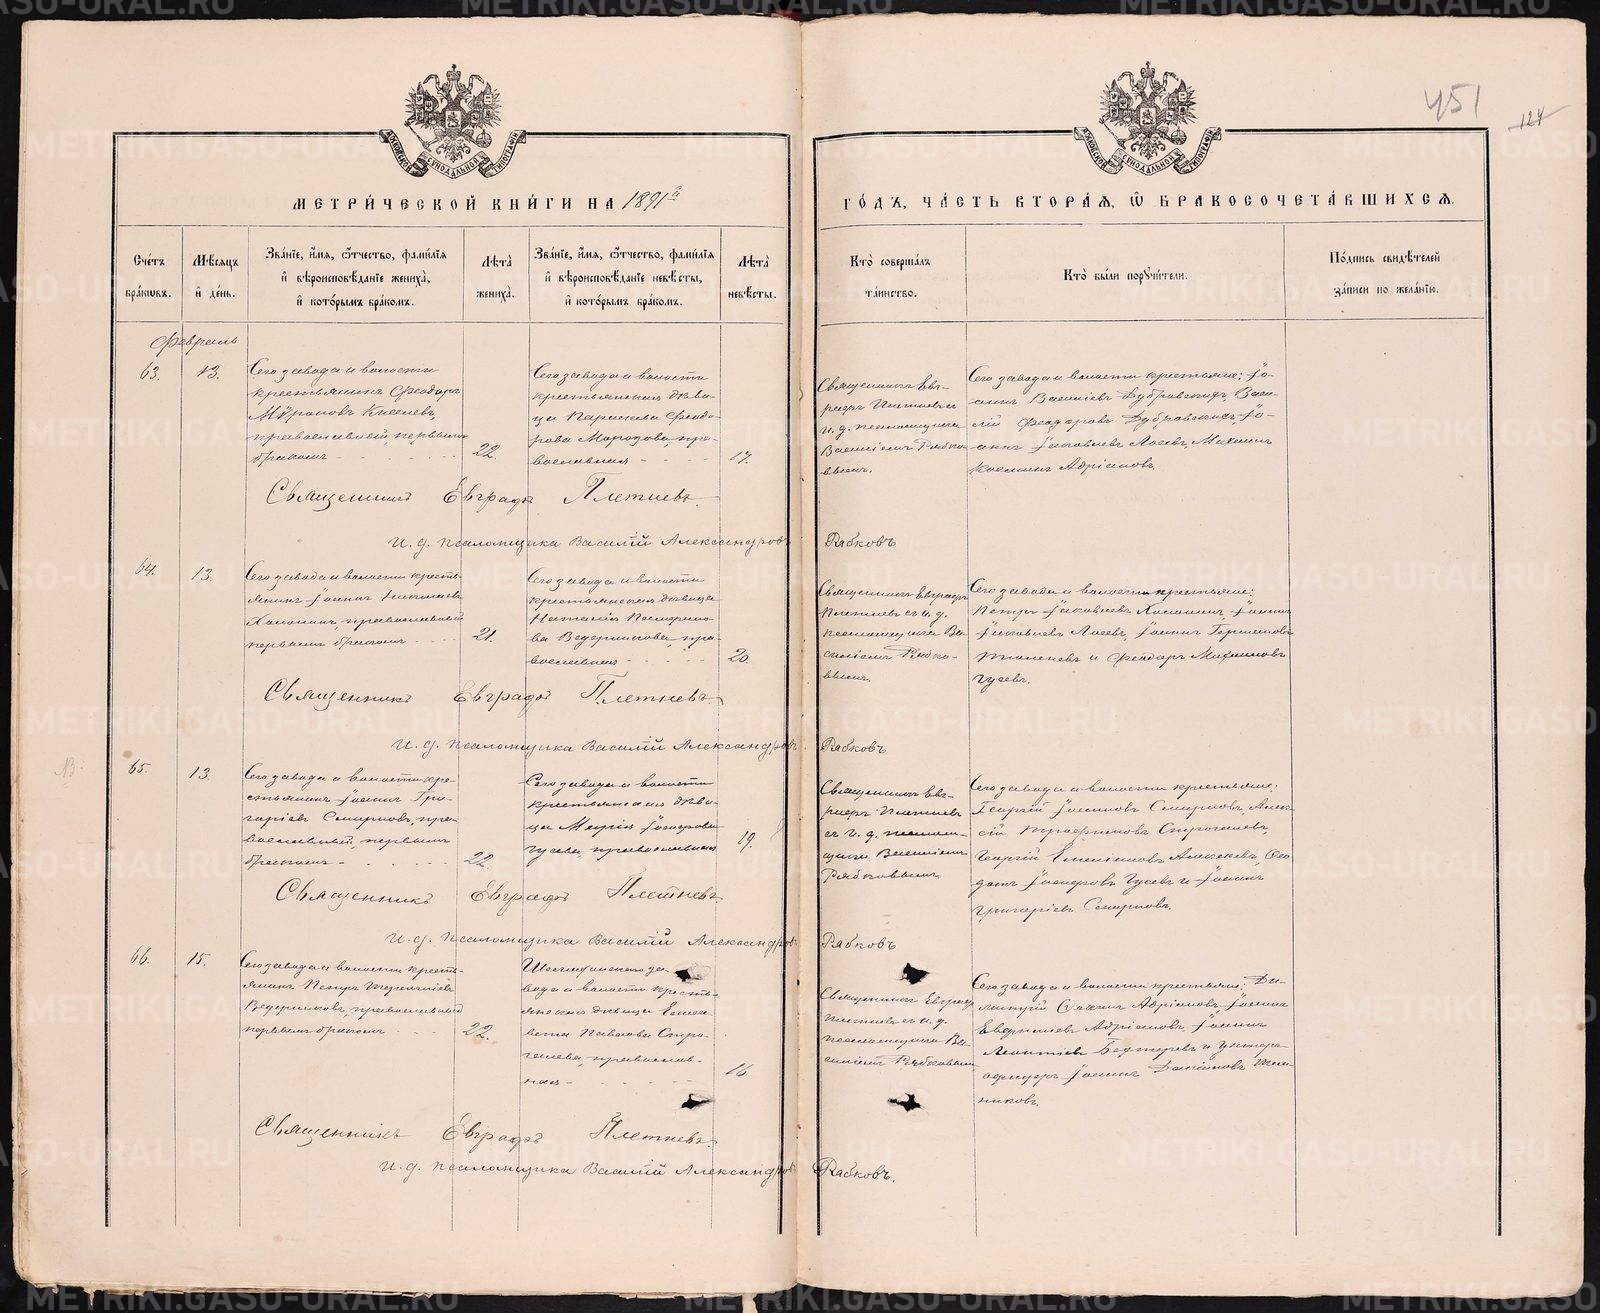 451
124
МОСКОВСКОЙ СѴНОДАЛЬНОЙ ТИПОГРАФІИ
МОСКОВСКОЙ СѴНОДАЛЬНОЙ ТИПОГРАФІИ
МЕТРИ́ЧЕСКОЙ КНИ́ГИ НА 1891й
ГО́ДЪ, ЧА́СТЬ ВТОРА́Я, Ѿ БРАКОСОЧЕТА́ВШИХСЯ.
Сче́тъ бра́кѡвъ.
Мѣ́сяцъ и де́нь.
Зва́нїе, и́мя, ѻ́тчество, фами́лїя
и вѣроисповѣ́данїе жениха̀,
и кото́рымъ бра́комъ.
Лѣта̀ жениха̀.
Зва́нїе, и́мя, ѻ́тчество, фами́лїя
и вѣроисповѣ́данїе невѣ́сты,
и кото́рымъ бра́комъ.
Лѣта̀ невѣ́сты.
Кто̀ соверша́лъ
та́инство.
Кто̀ бы́ли пор​ꙋчи́тели.
По́дпись свидѣ́телей
за́писи по жела́нїю.
Февраль
63.
13.
Сего завода и волости
крестьянинъ Феодоръ
Мѵроновъ Киселевъ,
православный, первымъ
бракомъ
22.
Сего завода и волости
крестьянская дѣви-
ца Параскева Феодо-
рова Морозова, пра-
вославная
17.
Священникъ Евг-
рафъ Плетневъ с
и. д. псаломщика
Василіемъ Рябко-
вымъ.
Сего завода и волости крестьяне: Іо-
аннъ Василіевъ Дубровскихъ, Васи-
лій Феодоровъ Дубровскихъ, Іо-
аннъ Іаковлевъ Лосевъ, Михаилъ
Козминъ Адріановъ.
Священникъ Евграфъ Плетневъ
И. д. псаломщика Василій Александровъ Рябковъ
64.
13.
Сего завода и волости кресть-
янинъ Іоаннъ Николаевъ
православный
первымъ бракомъ
21.
Сего завода и волости
крестьянская дѣвица
Наталія
ва Ведерникова, пра-
вославная
20.
Священникъ Евграфъ
Плетневъ с и. д.
псаломщика Ва-
силіемъ Рябко-
вымъ.
Сего завода и волости крестьяне:
Петръ Іаковлевъ Іоаннъ
Іаковлевъ Лосевъ, Іоаннъ Германовъ
и Феодоръ Михаиловъ
Гусевъ.
Священникъ Евграфъ Плетневъ
И. д. псаломщика Василій Александровъ Рябковъ
65.
13.
Сего завода и волости кре-
стьянинъ Іоаннъ Гри-
горіевъ Смирновъ, пра-
вославный, первымъ
бракомъ
22.
Сего завода и волости
крестьянская дѣви-
ца Марія
Гусева, православная
19.
Священникъ Евг-
рафъ Плетневъ
съ и. д. псалом-
щика Василіемъ
Рябковымъ.
Сего завода и волости крестьяне:
Георгій Іоанновъ Смирновъ, Алек-
сій Трофимовъ Строгалевъ,
Георгій Емеліановъ Алексѣевъ, Ѳео-
доръ Гусевъ и Іоаннъ
Григоріевъ Смирновъ.
Священникъ Евграфъ Плетневъ
И. д. псаломщика Василій Александровъ Рябковъ
66.
15.
Сего завода и волости кресть-
янинъ Петръ Терентіевъ
Ведерниковъ, православный
первымъ бракомъ
22.
за-
вода и волости кресть-
янская дѣвица Елиса-
вета Павлова Стро-
галева, православ-
ная
16
Священникъ Евграфъ
Плетневъ съ и. д.
псаломщика Ва-
силіемъ Рябковымъ
Сего завода и волости крестьяне: Ди-
митрій Адріановъ, Іоаннъ
Адріановъ, Іоаннъ
Леонтіевъ Бехтеревъ и унтеръ-
офицеръ Іоаннъ
никовъ.
Священникъ Евграфъ Плетневъ.
И. д. псаломщика Василій Александровъ Рябковъ.
METRIKI.GASO-URAL.RU